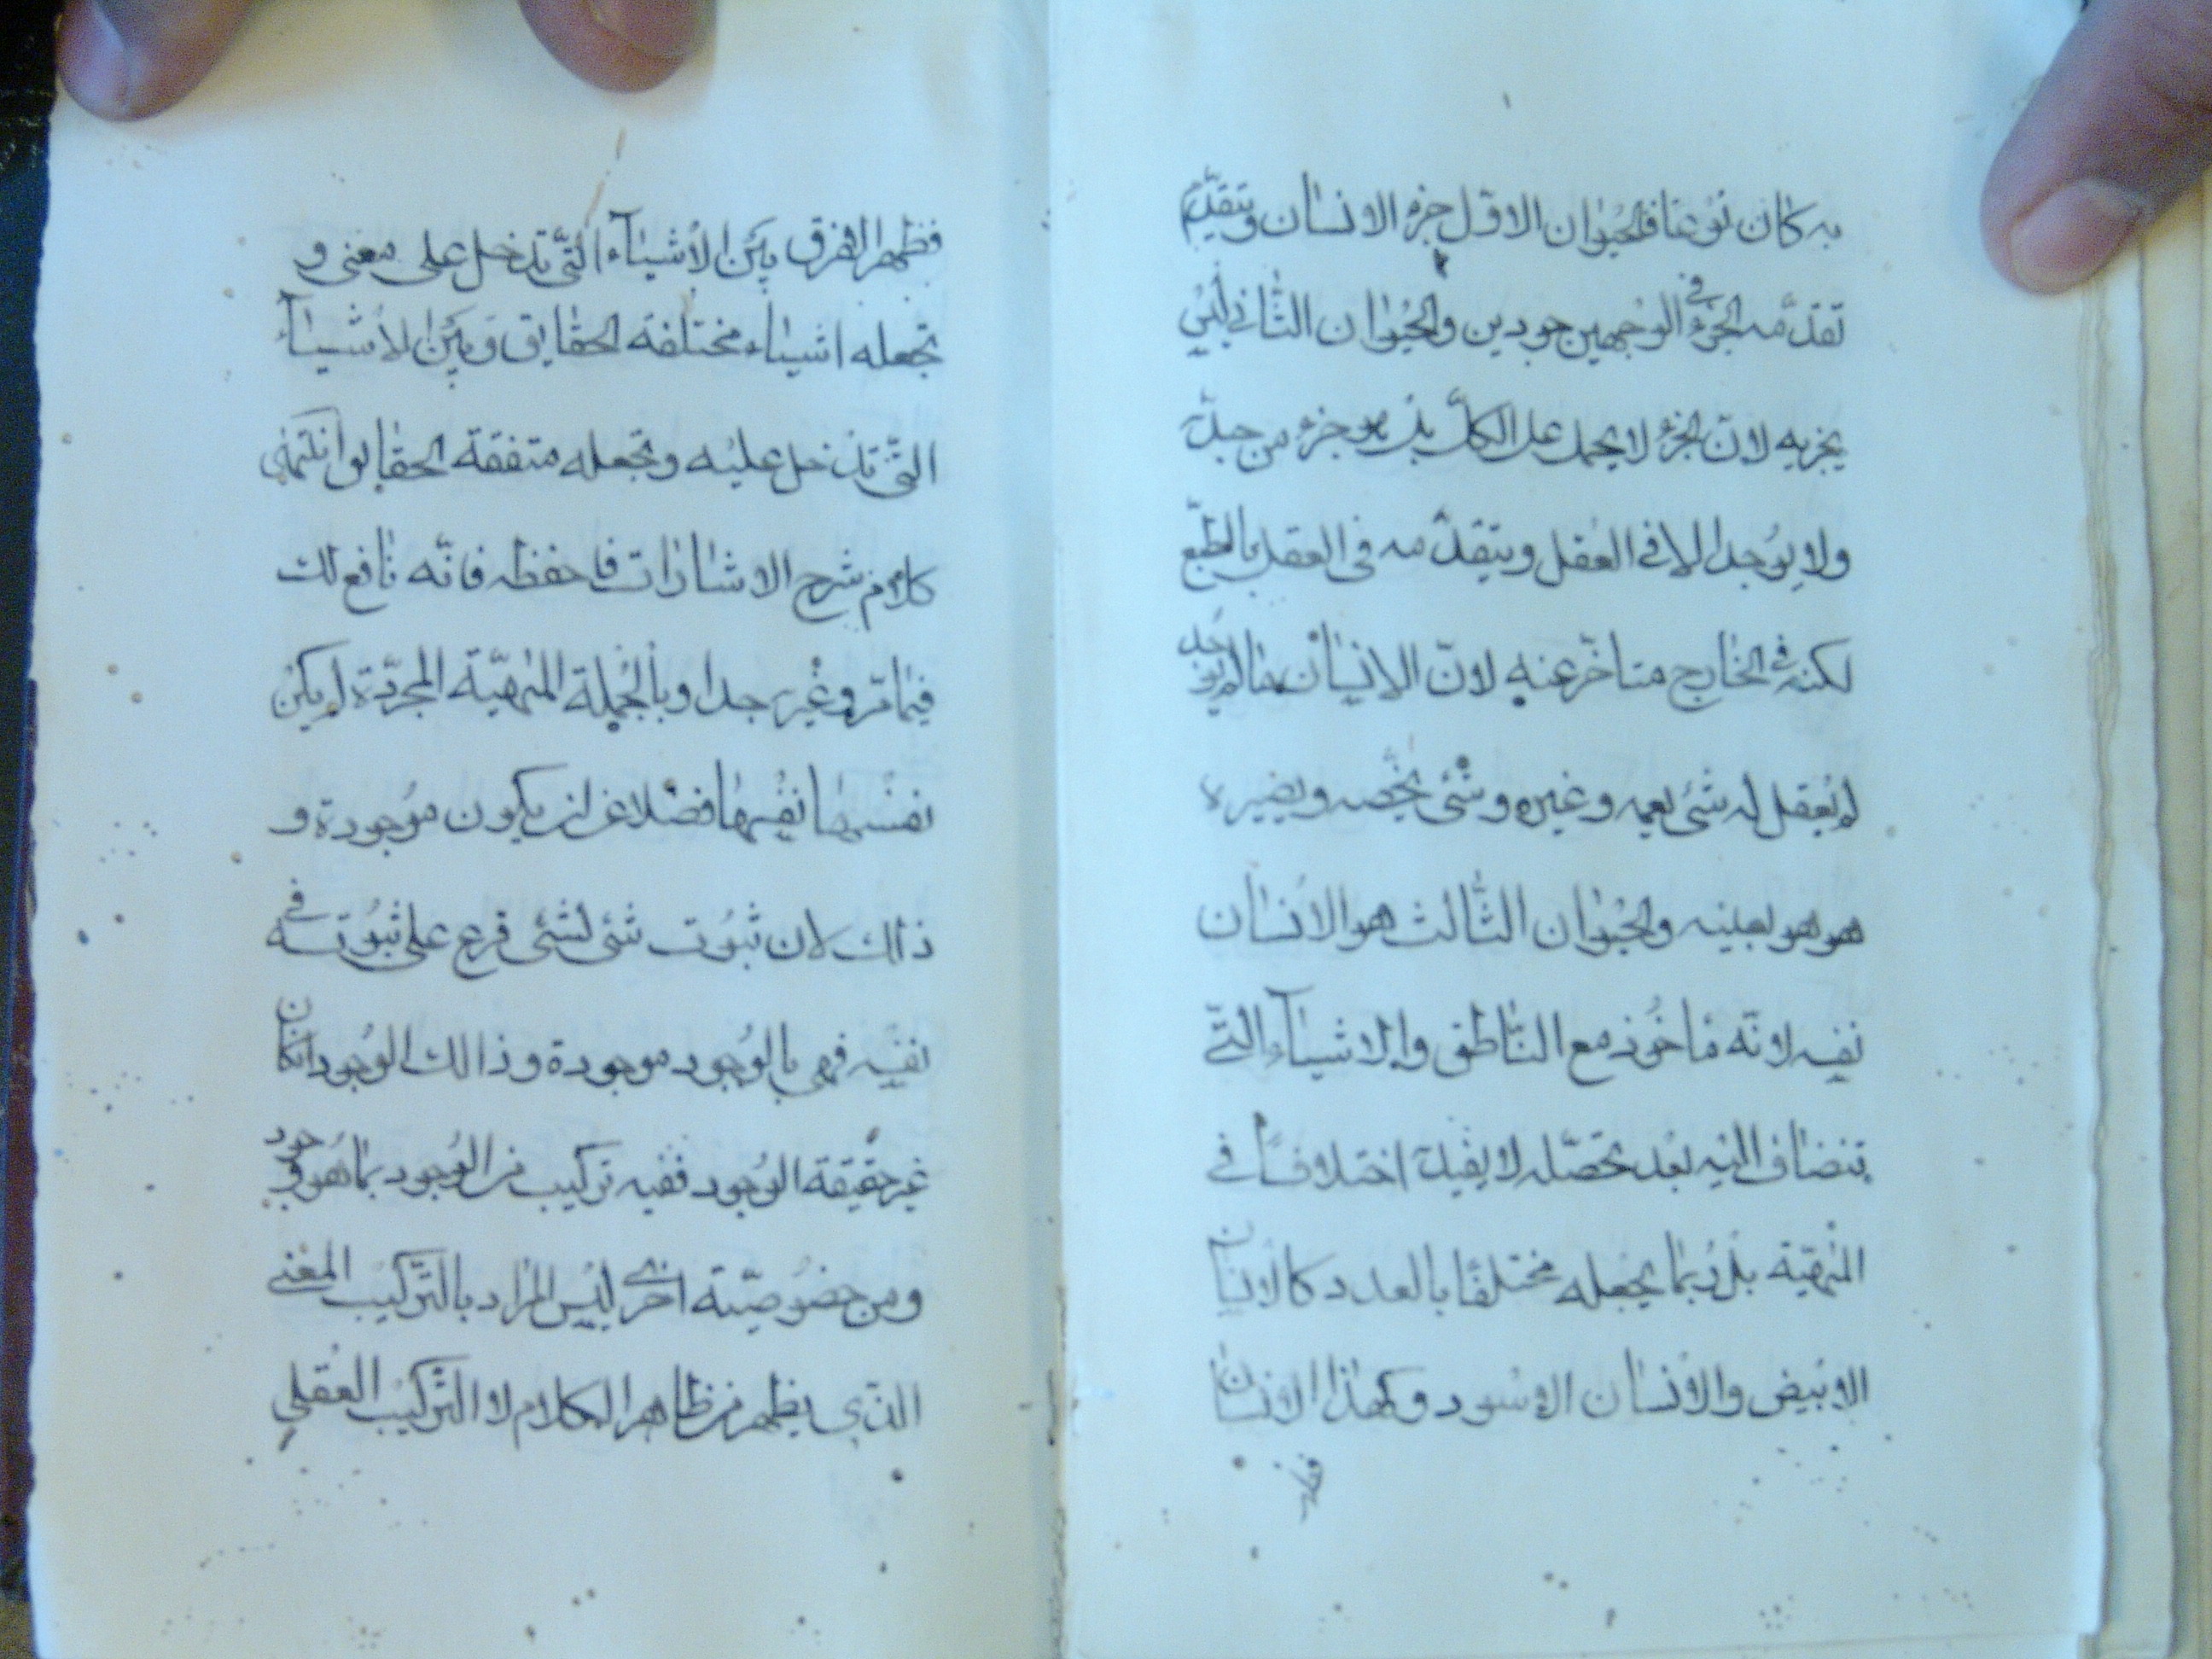 به كان نوعا فالحيوان الاول جزء الانسان ويتقدم
تقدمه الجزء في الوجهين جودين والحيوان الثاني ليس
بجزيه لان الجزء لا يحمل على الكل بل هو جزء من حده
ولا يوجد الا في العقل ويتقدمه في العقل بالطبع
لكنه في الخارج متاخر عنه لان الانسان ما لم يوجد
لم يعقل له شئ يعمه وغيره وشئ يخصه ويصيره
هو هو بعينه والحيوان الثالث هو الانسان
نفسه لانه ماخوذ مع الناطق والاشياء التى
تنضاف اليه بعد تحصله لا يفيده اختلافا في
المهية بل ربما يجعله مختلفا بالعدد كالانسان
الابيض والانسان الاسود وكهذا الانسان
فظهر الفرق بين الاشياء التى تدخل على معنى و
تجعله اشياء مختلفة الحقايق وبين الاشياء
التى تدخل عليه وتجعله متفقة الحقايق انتهى
كلام شرح الاشارات فاحفظه فانه نافع لك
فيما مر وغير جدا وبالجملة المهية المجردة لم يكن
نفسها نفسها فضلا عن ان يكون موجودة و
ذلك لان ثبوت شئ لشئ فرع على ثبوته في
نفسه فهي بالوجود موجودة وذالك الوجود ان كان
غير حقيقة الوجود ففيه تركيب من الوجود بما هو وجود
ومن خصوصية اخرى ليس المراد بالتركيب المعنى
الذى يظهر من ظاهر الكلام لا التركيب العقلي